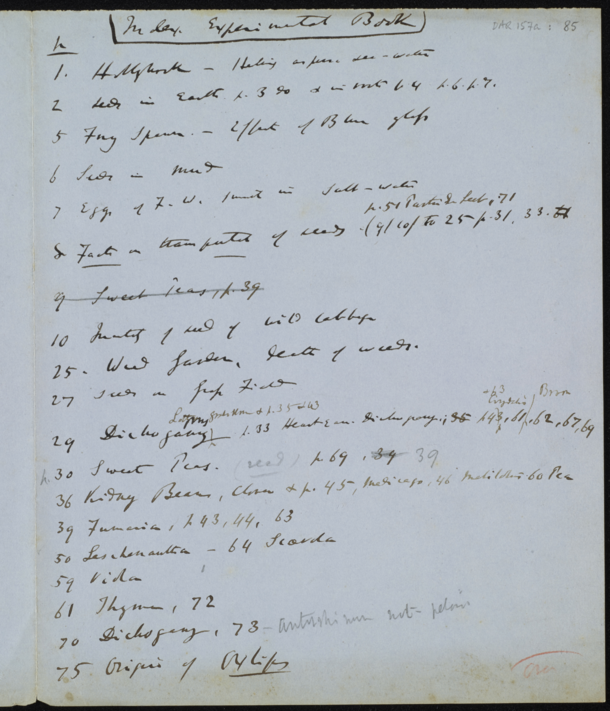 DAR 157a : 85
Index. Experimental Book
p.
1. Hollyhock – Helix aspersa sea-water
2 Seeds in Earth p. 3 30 & in salt 64 p. 6. p. 7.
5 Frog Spawn. – Effect of Blue glass
6 Seeds in mud
7 Eggs of F. W. in Salt-water
p. 51 71
8 Facts on transportal of seeds (9/10/ to 25 p. 31, 33.
9 Sweet Peas, p. 39
10 of seed of wild cabbage
25. Weed Garden, death of weeds.
27 Seeds in Field
& p. 35 & 43
29 Dichogamy p. 33 Heartsease. Dichogamy, 35 p 43, 61, 62, 67, 69
p. 30 Sweet Peas. (seed) p 69, 39 39
36 Kidney Beans, Clover & p. 45, Medicago, 46 Melilotus 60 Pea
39 Fumaria, p 43, 44, 63
50 Leschenaultia – 64 Scaevola
59 Vicia
61 Thymus, 72
70 Dichogamy, 73 – antirrhinum not peloric
75 Origin of Oxlips